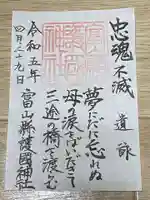 忠魂不滅
遺詠
夢にだに忘れぬ
母の涙をばいだきて
三途の橋を渡らむ
令和五年
四月二十九日
富山縣護國神社